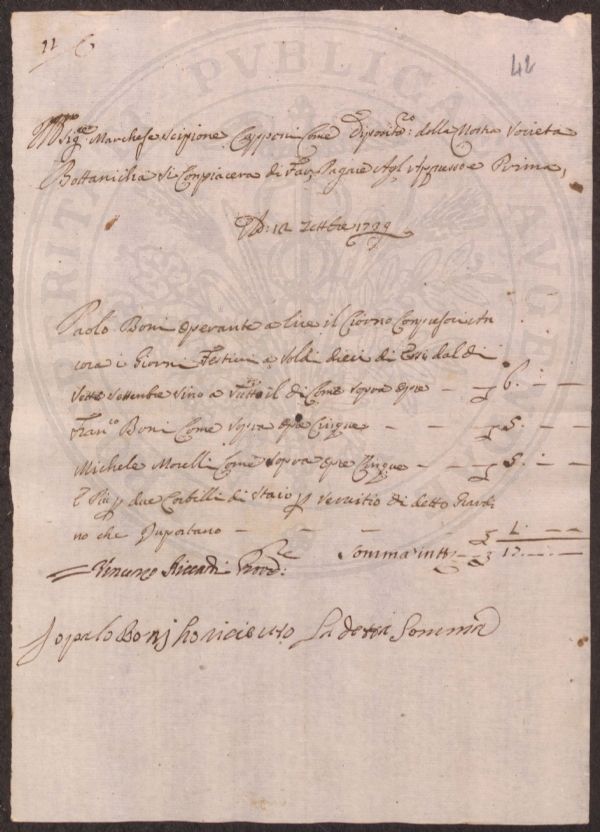 11
42
Sig.re Marchese Scipione Capponi Come Diposit.rio della Nostra Società
Bottanicha Si Conpiacera di Far Pagare Agl Appresso e Prima,
12 7ettbre 1739
Paolo Boni Operante a lire il Giorno Conpresovi An
cora i Giorni Festivi a Soldi dieci di Essi dal di
Sette Settembre Sino a tutto il di Come Sopra opre — 6. — —
Fran.co Boni Come Sopra opre Cinque — — — 5. — —
Michele Morelli Come Sopra opre Cinque — — — 5. — —
E Piu p due Corbelli di Staio p Servitio di detto Giardi
no che Inportano — — — — 1. — —
Somma in tt.o — 17. — —
Vincenzo Riccardi Prov.re
Io paolo Bonj ho riceuto La detta Somma
PVBLICAE